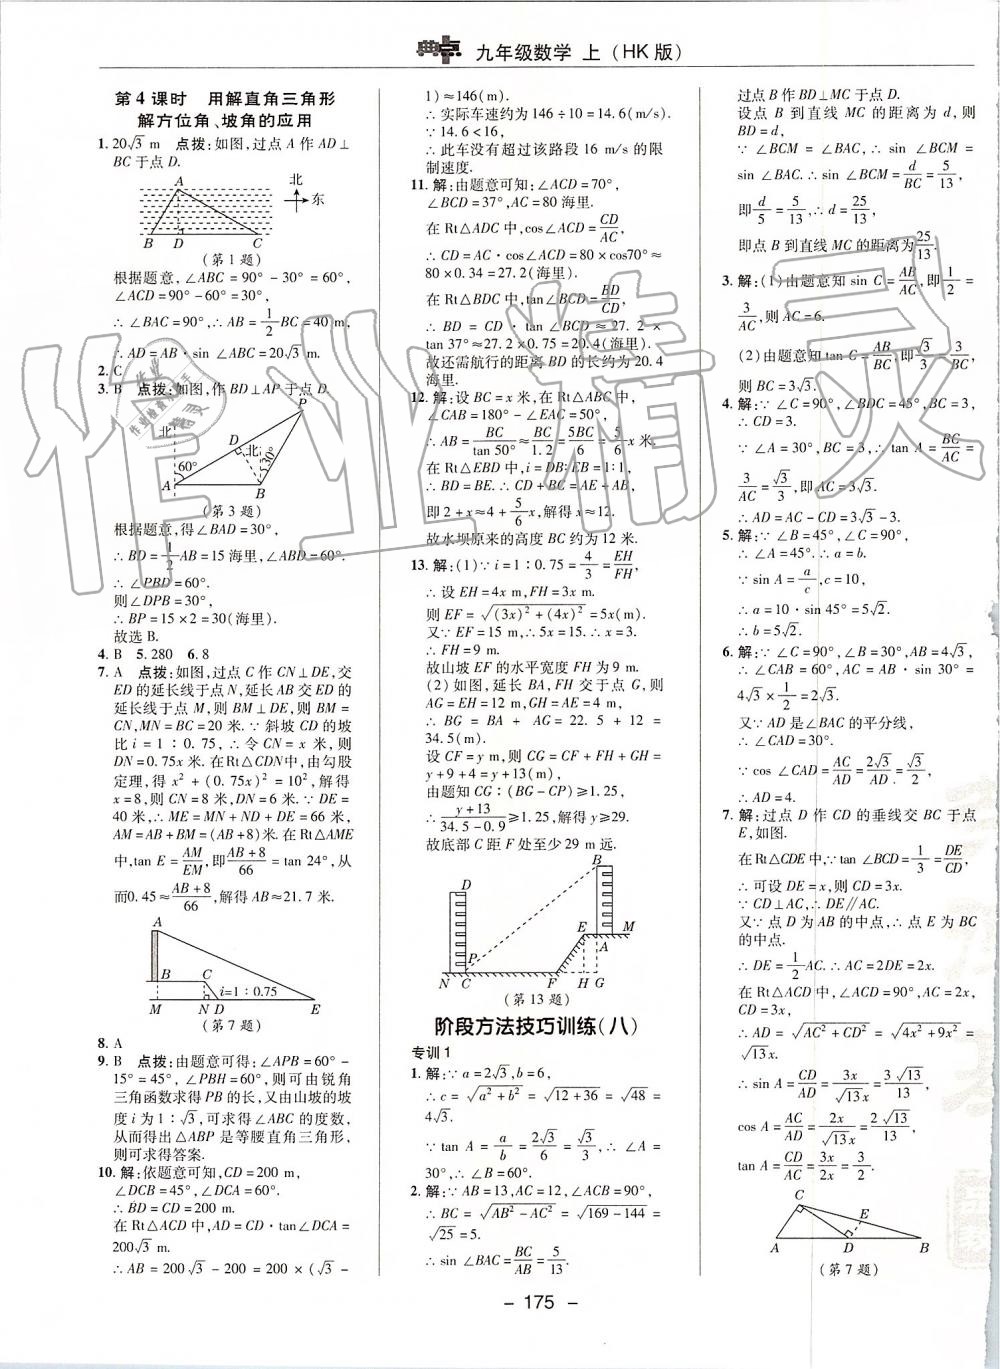 典点 九年级数学 上(HK版)
第4课时 用解直角三角形
解方位角、坡角的应用
1. 20√3 m 点拨:如图,过点A作AD⊥
BC于点D.
A
北
东
B D C
(第1题)
根据题意,∠ABC=90°-30°=60°,
∠ACD=90°-60°=30°,
∴∠BAC=90°,∴AB=1/2BC=40 m,
∴AD=AB·sin∠ABC=20√3 m.
2. C
3. B 点拨:如图,作BD⊥AP于点D.
P
北
D
北
60°
30°
A B
(第3题)
根据题意,得∠BAD=30°,
∴BD=1/2AB=15海里,∠ABD=60°.
∴∠PBD=60°.
则∠DPB=30°,
∴BP=15×2=30(海里).
故选B.
4. B 5. 280 6. 8
7. A 点拨:如图,过点C作CN⊥DE,交
ED的延长线于点N,延长AB交ED的
延长线于点M,则BM⊥DE,则BM=
CN,MN=BC=20米.∵斜坡CD的坡
比i=1∶0.75,∴令CN=x米,则
DN=0.75x米.在Rt△CDN中,由勾股
定理,得x²+(0.75x)²=10²,解得
x=8,则CN=8米,DN=6米.∵DE=
40米,∴ME=MN+ND+DE=66米,
AM=AB+BM=(AB+8)米.在Rt△AME
中,tan E=AM/EM,即(AB+8)/66=tan 24°,从
而0.45≈(AB+8)/66,解得AB≈21.7米.
A
B C
i=1∶0.75
M N D E
(第7题)
8. A
9. B 点拨:由题意可得:∠APB=60°-
15°=45°,∠PBH=60°,则可由锐角
三角函数求得PB的长,又由山坡的坡
度i为1∶√3,可求得∠ABC的度数,
从而得出△ABP是等腰直角三角形,
则可求得答案.
10. 解:依题意可知,CD=200 m,
∠DCB=45°,∠DCA=60°.
∴BD=CD=200 m.
在Rt△ACD中,AD=CD·tan∠DCA=
200√3 m.
∴AB=200√3-200=200×(√3-
1)≈146(m).
∴实际车速约为146÷10=14.6(m/s).
∵14.6<16,
∴此车没有超过该路段16 m/s的限
制速度.
11. 解:由题意可知:∠ACD=70°,
∠BCD=37°,AC=80海里.
在Rt△ADC中,cos∠ACD=CD/AC,
∴CD=AC·cos∠ACD=80×cos70°≈
80×0.34=27.2(海里).
在Rt△BDC中,tan∠BCD=BD/CD,
∴BD=CD·tan∠BCD≈27.2×
tan 37°≈27.2×0.75=20.4(海里).
故还需航行的距离BD的长约为20.4
海里.
12. 解:设BC=x米,在Rt△ABC中,
∠CAB=180°-∠EAC=50°,
∴AB=BC/tan50°≈BC/1.2=5BC/6=5/6x米.
在Rt△EBD中,i=DB∶EB=1∶1,
∴BD=BE.∴CD+BC=AE+AB,
即2+x≈4+5/6x,解得x≈12.
故水坝原来的高度BC约为12米.
13. 解:(1)∵i=1∶0.75=4/3=EH/FH,
∴设EH=4x m,FH=3x m.
则EF=√((3x)²+(4x)²)=5x(m).
又∵EF=15 m,∴5x=15.∴x=3.
∴FH=9 m.
故山坡EF的水平宽度FH为9 m.
(2)如图,延长BA,FH交于点G,则
AG=EH=12 m,GH=AE=4 m,
∴BG=BA+AG=22.5+12=
34.5(m).
设CF=y m,则CG=CF+FH+GH=
y+9+4=y+13(m),
由题知CG∶(BG-CP)≥1.25,
∴(y+13)/(34.5-0.9)≥1.25,解得y≥29.
故底部C距F处至少29 m远.
B
D
E M
A
P
N C F H G
(第13题)
阶段方法技巧训练(八)
专训1
1. 解:∵a=2√3,b=6,
∴c=√(a²+b²)=√(12+36)=√48=
4√3.
∵tan A=a/b=2√3/6=√3/3,∴∠A=
30°,∴∠B=60°.
2. 解:∵AB=13,AC=12,∠ACB=90°,
∴BC=√(AB²-AC²)=√(169-144)=
√25=5.
∴sin∠BAC=BC/AB=5/13.
过点B作BD⊥MC于点D.
设点B到直线MC的距离为d,则
BD=d,
∵∠BCM=∠BAC,∴sin∠BCM=
sin∠BAC.∴sin∠BCM=d/BC=5/13,
即d/5=5/13,∴d=25/13,
即点B到直线MC的距离为25/13.
3. 解:(1)由题意知sin C=AB/AC,即1/2=
3/AC,则AC=6.
(2)由题意知tan C=AB/BC,即√3/3=3/BC,
则BC=3√3.
4. 解:∵∠C=90°,∠BDC=45°,BC=3,
∴CD=3.
∵∠A=30°,BC=3,∴tan A=BC/AC=
3/AC=√3/3,即AC=3√3.
∴AD=AC-CD=3√3-3.
5. 解:∵∠B=45°,∠C=90°,
∴∠A=45°.∴a=b.
∵sin A=a/c,c=10,
∴a=10·sin 45°=5√2.
∴b=5√2.
6. 解:∵∠C=90°,∠B=30°,AB=4√3,
∴∠CAB=60°,AC=AB·sin 30°=
4√3×1/2=2√3.
又∵AD是∠BAC的平分线,
∴∠CAD=30°.
∵cos∠CAD=AC/AD=2√3/AD=√3/2,
∴AD=4.
7. 解:过点D作CD的垂线交BC于点
E,如图.
在Rt△CDE中,∵tan∠BCD=1/3=DE/CD,
∴可设DE=x,则CD=3x.
∵CD⊥AC,∴DE∥AC.
又∵点D为AB的中点,∴点E为BC
的中点.
∴DE=1/2AC.∴AC=2DE=2x.
在Rt△ACD中,∠ACD=90°,AC=2x,
CD=3x,
∴AD=√(AC²+CD²)=√(4x²+9x²)=
√13x.
∴sin A=CD/AD=3x/√13x=3√13/13,
cos A=AC/AD=2x/√13x=2√13/13,
tan A=CD/AC=3x/2x=3/2.
C
E
A D B
(第7题)
- 175 -
作业精灵